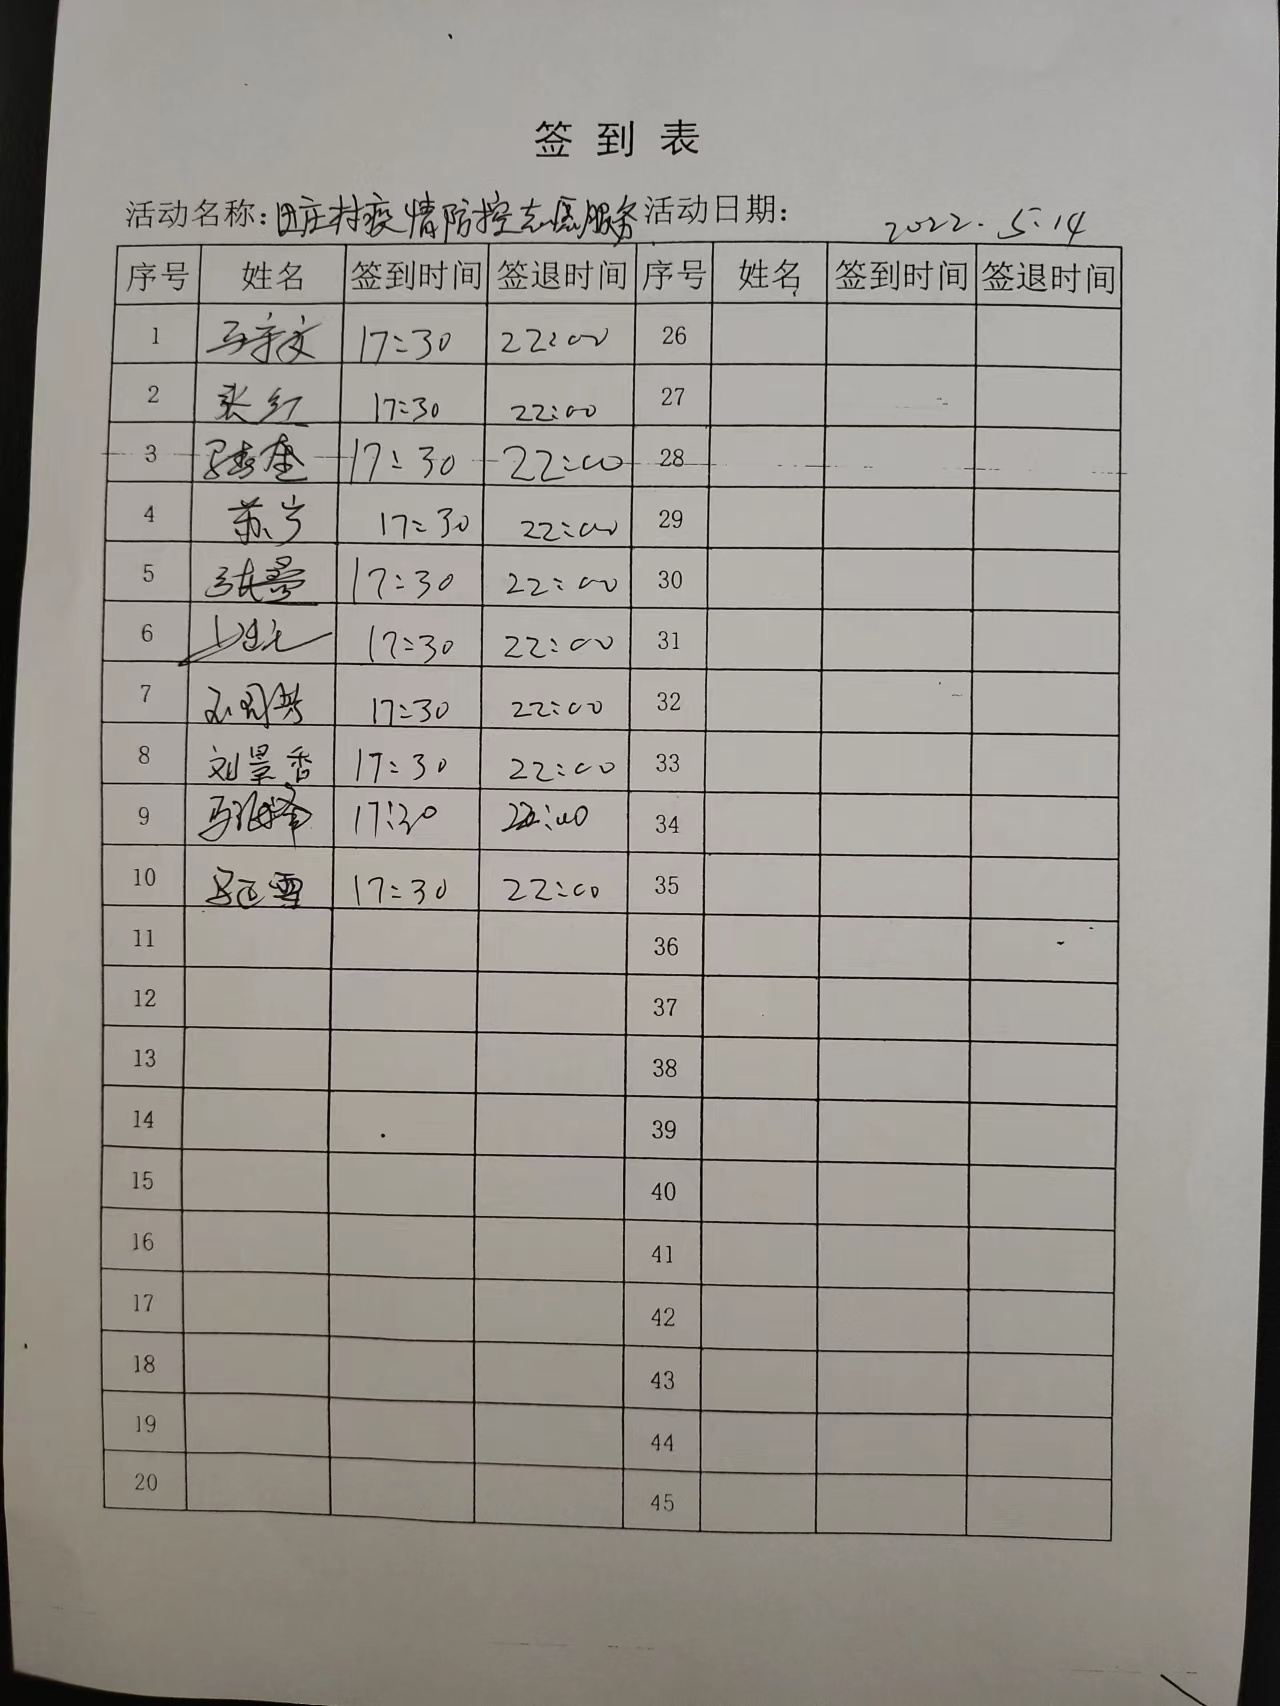 签到表
活动名称:田庄村疫情防控志愿服务 活动日期: 2022.5.14
序号 姓名 签到时间 签退时间 序号 姓名 签到时间 签退时间
1 17:30 22:00 26
2 张红 17:30 22:00 27
3 17:30 22:00 28
4 苏宁 17:30 22:00 29
5 17:30 22:00 30
6 17:30 22:00 31
7 17:30 22:00 32
8 刘景香 17:30 22:00 33
9 17:30 22:00 34
10 17:30 22:00 35
11 36
12 37
13 38
14 39
15 40
16 41
17 42
18 43
19 44
20 45